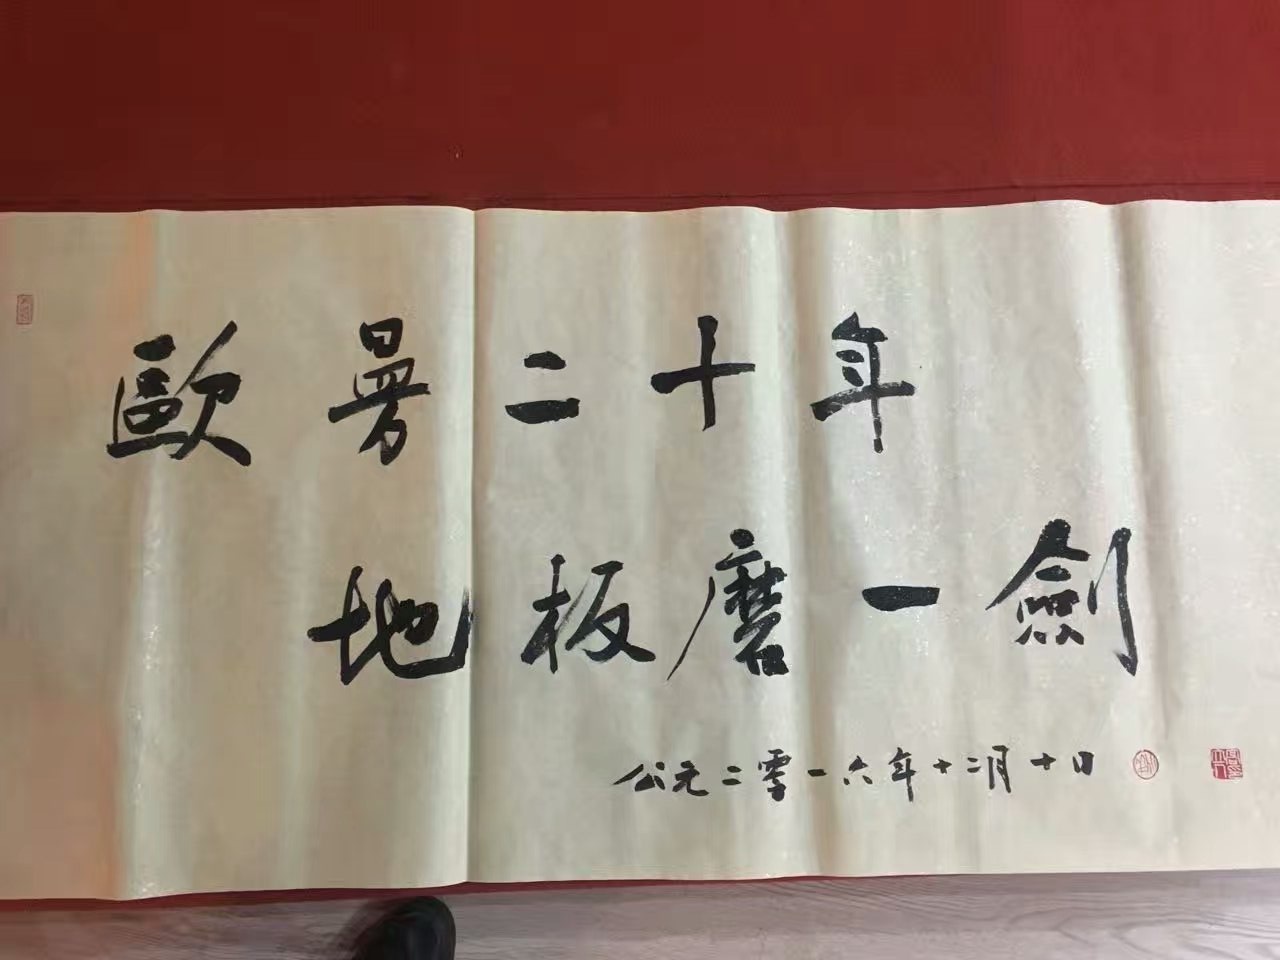 歐曼二十年
地板磨一劍
公元二零一六年十二月十日